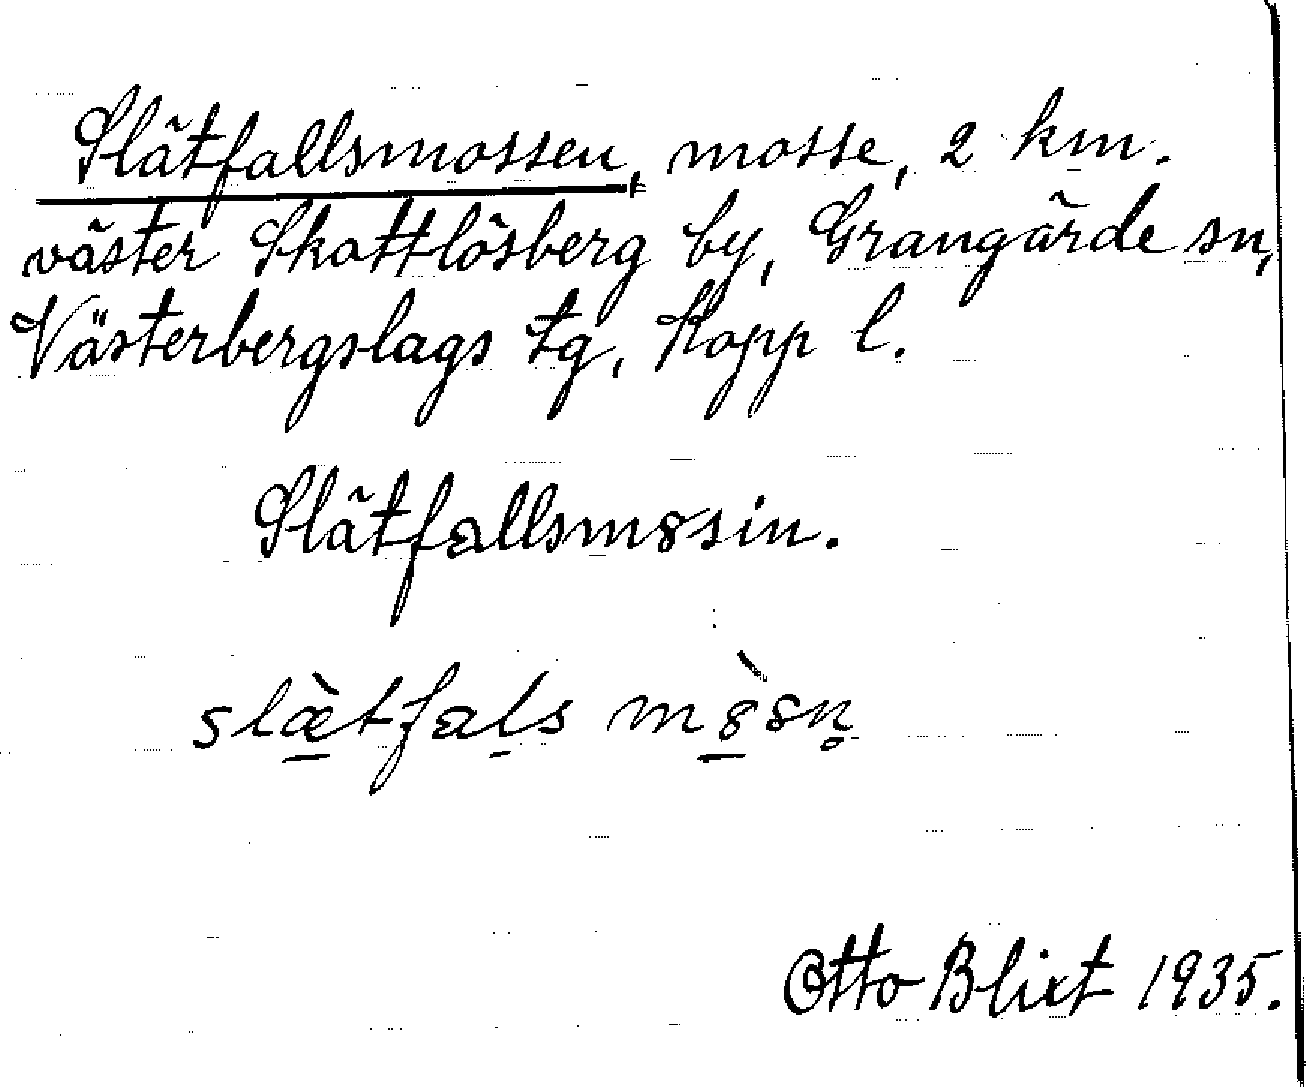 Slätfallsmossen, mosse, 2 km.
väster Skattlösberg by, Grangärde sn,
Västerbergslags tg, Kopp l.
Slätfallsm8sin.
slæ̀tfaḷs m8̀sn̥
Otto Blixt 1935.